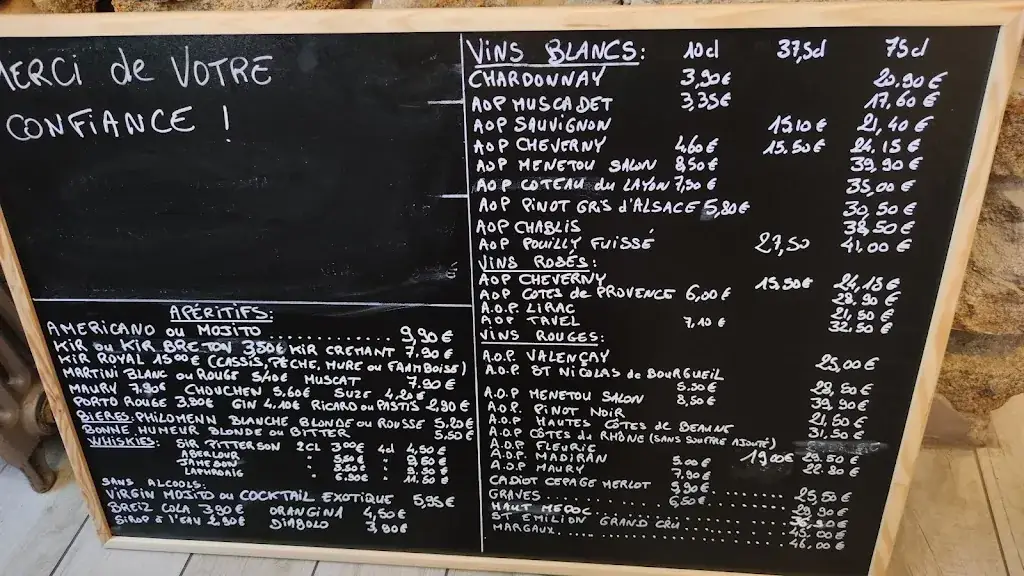 MERCI de VOTRE
CONFIANCE !
APÉRITIFS:
AMERICANO ou MOJITO .................... 9,90 €
KIR ou KIR BRETON 3,50€ KIR CREMANT 7.90 €
KIR ROYAL 15.00€ (CASSIS, PÊCHE, MURE ou FRAMBOISE)
MARTINI BLANC ou ROUGE 5,40€ MUSCAT 7.90 €
MAURY 7,90€ CHOUCHEN 5,60€ SUZE 4,20€
PORTO ROUGE 3,80€ GIN 4.10€ RICARD ou PASTIS 2,80 €
BIERES: PHILOMENN BLANCHE BLONDE ou ROUSSE 5.20€
BONNE HUMEUR BLONDE ou BITTER 5.50€
WHISKIES: SIR PITTERSON 2CL 3,00€ 4cl 4,50€
ABERLOUR
JAMESON
LAPHROAIG 11.50 €
SANS ALCOOLS:
VIRGIN MOJITO ou COCKTAIL EXOTIQUE 5,95€
BREIZ COLA 3,90€ ORANGINA 4,50€
SIROP À L'EAU 2,80€ DIABOLO 3,80€
VINS BLANCS: 10cl 37,5cl 75cl
CHARDONNAY 3,90€ 20.90€
AOP MUSCADET 3,35€ 17,60€
AOP SAUVIGNON 15,10€ 21,40€
AOP CHEVERNY 4,60€ 15.50€ 24,15€
AOP MENETOU SALON 8,50€ 39,90€
AOP COTEAU du LAYON 7,90€ 35,00€
AOP PINOT GRIS d'ALSACE 5,80€ 30,50€
AOP CHABLIS 38,50€
AOP POUILLY FUISSÉ 27,50 41.00€
VINS ROSÉS:
AOP CHEVERNY 15.50€ 24,15€
AOP COTES de PROVENCE 6,00€ 28,90€
A.O.P. LIRAC 21,50€
AOP TAVEL 7,10€ 32.50€
VINS ROUGES:
A.O.P. VALENÇAY 25,00€
A.O.P. ST NICOLAS de BOURGUEIL 5.50€ 28,50€
A.O.P MENETOU SALON 8,50€ 39.50€
AOP. PINOT NOIR 21,50€
A.O.P HAUTES CÔTES DE BEAUNE 31.50€
A.O.P CÔTES du RHÔNE (SANS SOUFRE AJOUTÉ)
A.O.P FLEURIE 19.00€
A.O.P MADIRAN 5.00€ 22.80€
A.O.P MAURY 7,90€
CADIOT CEPAGE MERLOT 3,90€
GRAVES 6,50€ .......... 25,50€
HAUT MEDOC
ST EMILION GRAND CRU
MARGAUX ..... 46,00€